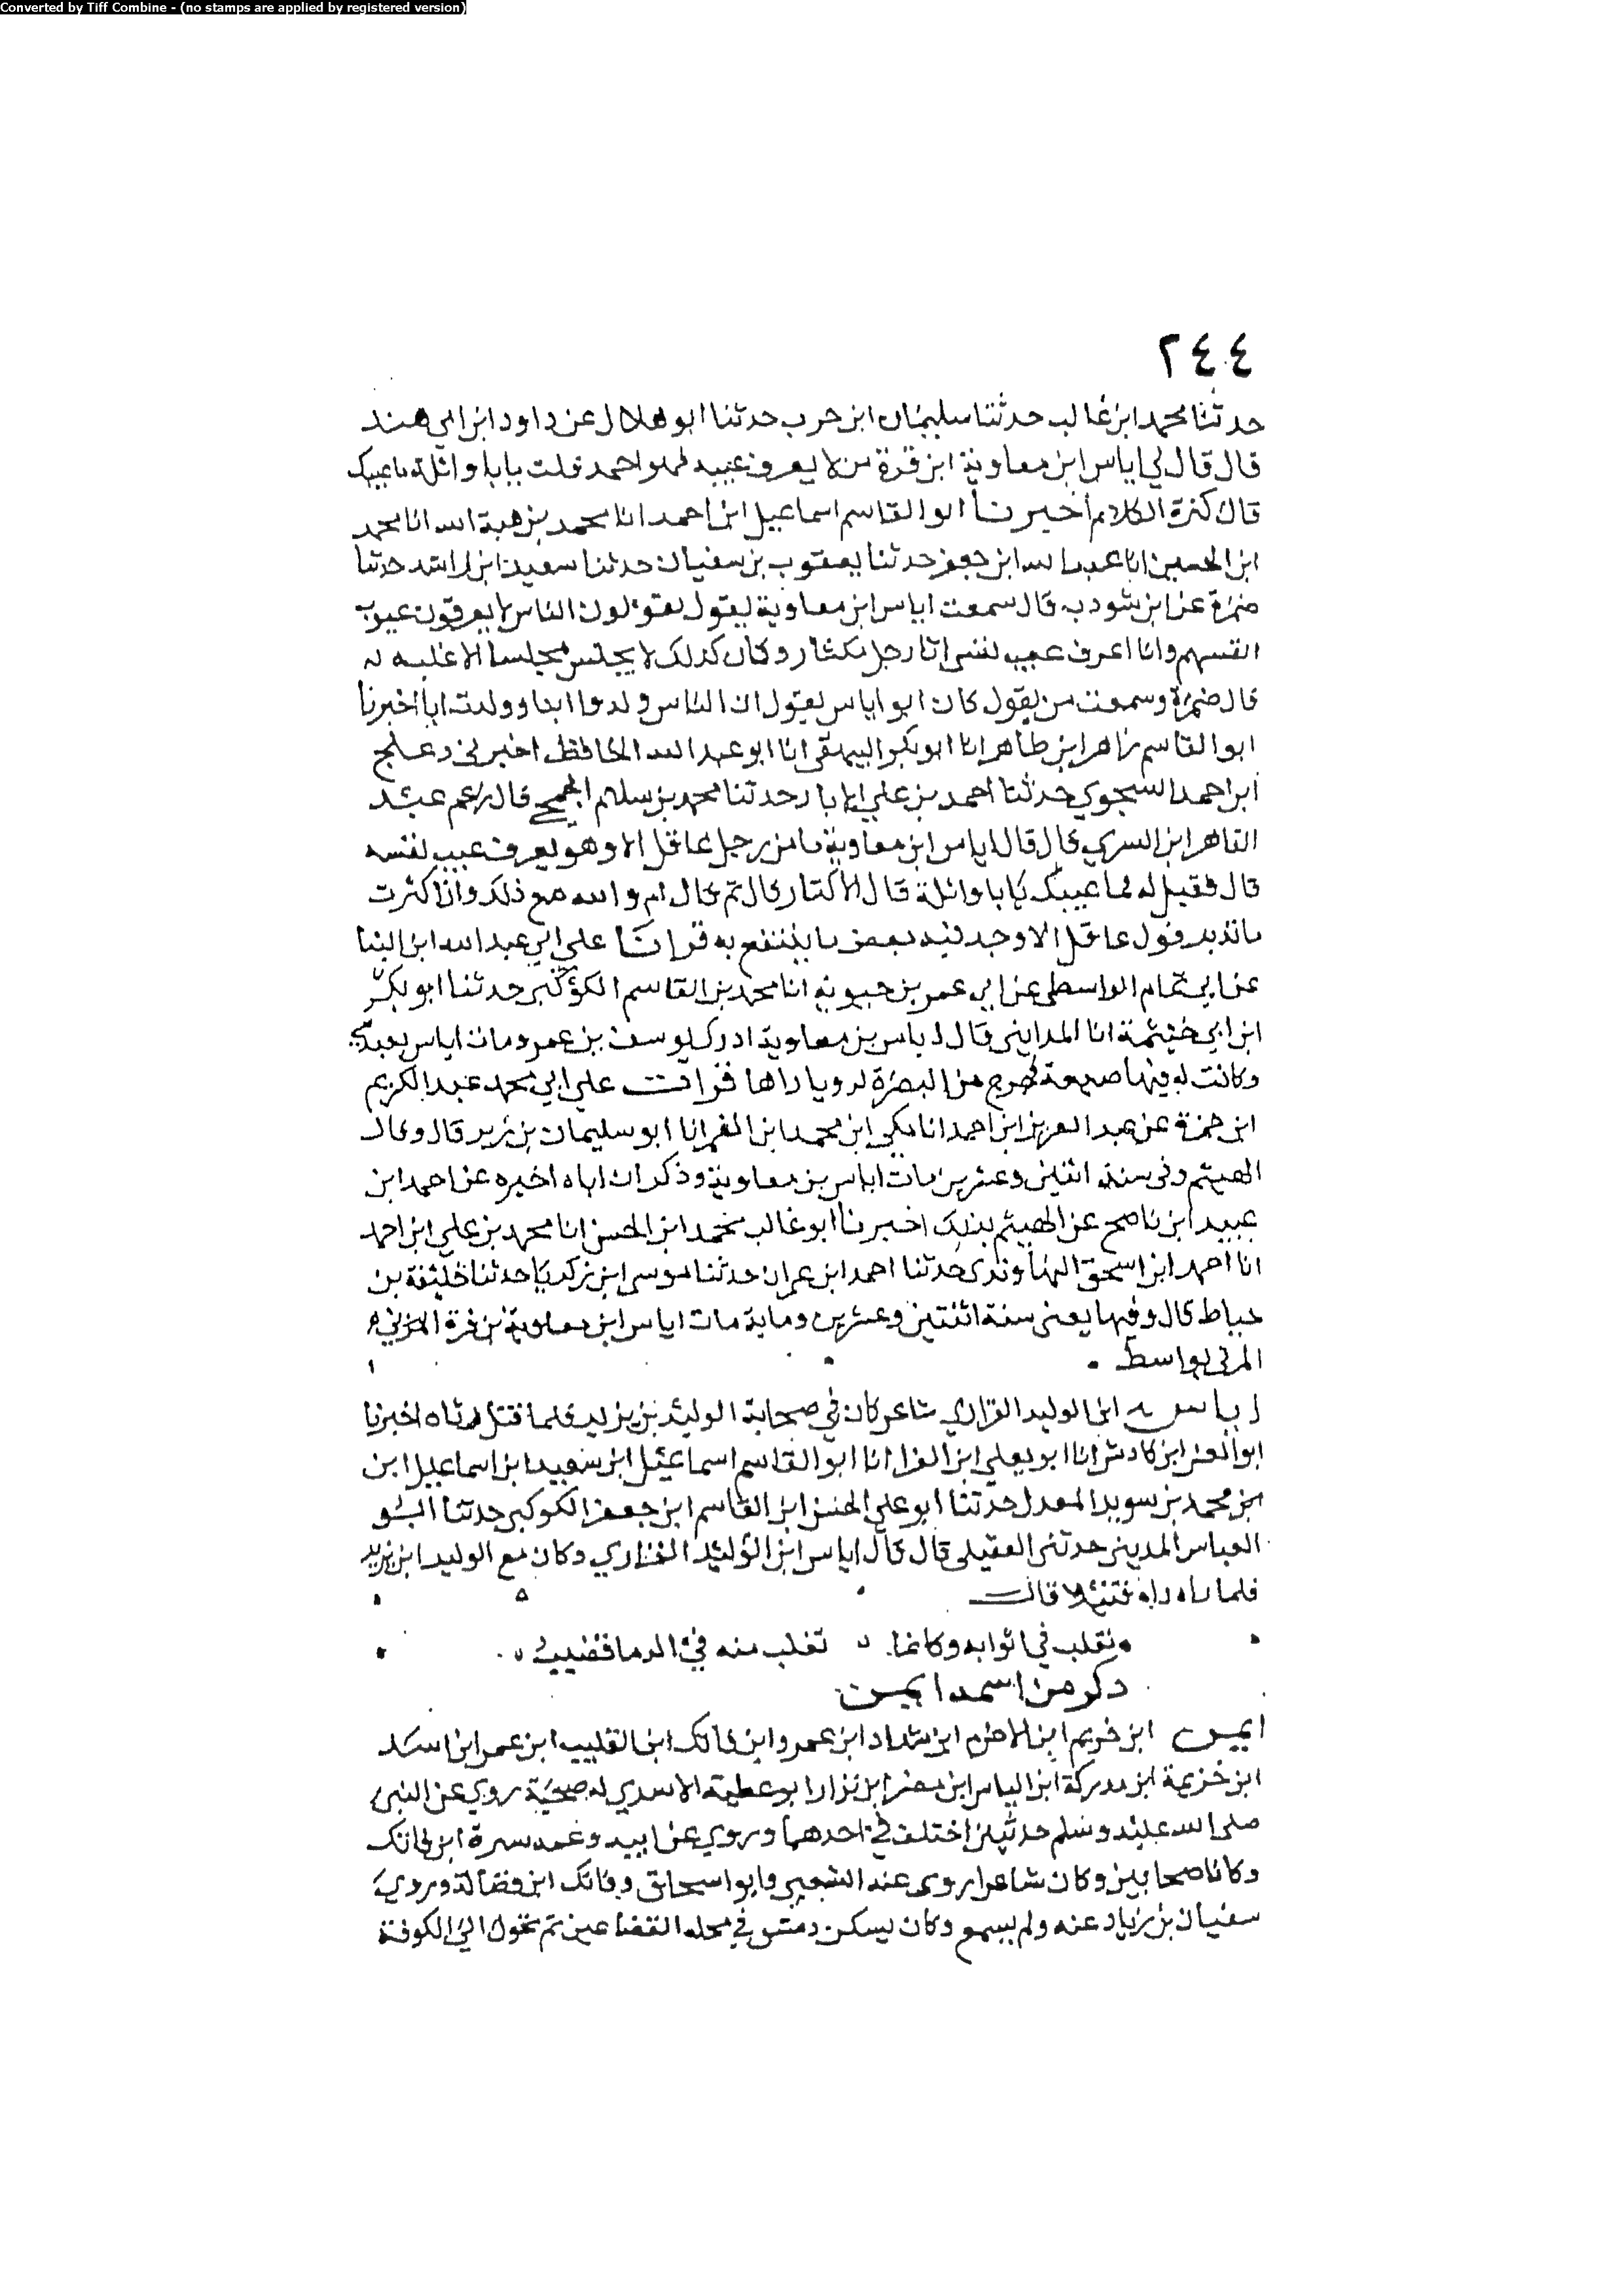 Converted by Tiff Combine - (no stamps are applied by registered version)
٢٤٤
حدثنا محمد ابن غالب حدثنا سليمان ابن حرب حدثنا ابو هلال عن داود ابن ابي هند
قال قال لي اياس ابن معاوية ابن قرة من لا يعرف عيبه فهو احمد قلت يابا واثلة ما عيبك
قال كثرة الكلام اخبرنا ابو القاسم اسماعيل ابن احمد انا محمد بن هبة الله انا محمد
ابن الحسين انا عبد الله ابن جعفر حدثنا يعقوب بن سفيان حدثنا سعيد ابن راشد حدثنا
ضمرة عن ابن شودب قال سمعت اياس ابن معاوية يقول يقولون الناس لا يعرفون عيوب
انفسهم وانا اعرف عيب نفسى انا رجل مكثار وكان كذلك لا يجلس مجلسا الا غلبه له
قال ضمرة وسمعت من يقول كان ابو اياس يقول ان الناس ولدوا ابنا وولدت ابا اخبرنا
ابو القاسم زاهر ابن طاهر انا ابو بكر البيهقى انا ابو عبد الله الحافظ اخبرنى دعلج
ابن احمد السجوي حدثنا احمد بن علي الابار حدثنا محمد بن سلام الجمحي قال زعم عبد
القاهر ابن السري قال قال اياس ابن معاوية ما من رجل عاقل الا وهو يعرف عيب نفسه
قال فقيل له فما عيبك يابا واثلة قال الاكثار قال ثم قال ام والله مع ذلك واذا كثرت
ما تدبر قول عاقل الا وجد فيه بعض ما ينتفع به قرانا علي ابي عبد الله ابن البنا
عن ابي تمام الواسطى عن ابي عمر بن حيويه انا محمد بن القاسم الكوكبى حدثنا ابو بكر
ابن ابي خيثمة انا المداينى قال اياس بن معاوية ادرك يوسف بن عمر ومات اياس بعبد
وكانت له فيها ضيعة فخرج من البصرة لرويا راها قرات علي ابي محمد عبد الكريم
ابن حمزة عن عبد العزيز ابن احمد انا مكي ابن محمد ابن الغمر انا ابو سليمان بن زبر قال وقال
الهيثم وفى سنة اثنين وعشرين مات اياس بن معاوية وذكر ان اباه اخبره عن احمد ابن
عبيد ابن ناصح عن الهيثم بذلك اخبرنا ابو غالب محمد ابن الحسن انا محمد بن علي ابن احمد
انا احمد ابن اسحق النهاوندى حدثنا احمد ابن عمران حدثنا موسى ابن زكريا حدثنا خليفة بن
خياط قال وفيها يعنى سنة اثنتين وعشرين وماية مات اياس ابن معاوية بن قرة المزني
المزنى بواسط
اياس ابن الوليد الفزاري شاعر كان في صحابة الوليد بن يزيد فلما قتل رثاه اخبرنا
ابو العز ابن كادش انا ابو يعلي ابن الفرا انا ابو القاسم اسماعيل ابن سعيد ابن اسماعيل ابن
بن محمد بن سويد المعدل حدثنا ابو علي الحسن ابن القاسم ابن جعفر الكوكبى حدثنا ابو
العباس المدينى حدثنى العقيلى قال قال اياس ابن الوليد الفزاري وكان مع الوليد ابن يزيد
فلما راه قتيلا قال
تقلب في اثوابه وكانما تقلب منه في الدما قضيب
ذكر من اسمه ايمن
ايمن ابن خريم ابن الاخرم ابن شداد ابن عمرو ابن فاتك ابن القليب ابن عمر ابن اسد
ابن خزيمة ابن مدركة ابن الياس ابن مضر ابن نزار ابو عطية الاسدي له صحبة روي عن النبى
صلى الله عليه وسلم حدثين اختلف في احدهما وروي عن ابيه وعمه سبرة ابن فاتك
وكانا صحابين وكان شاعرا روى عنه الشعبي وابو اسحاق وفاتك ابن فضالة وروي
سفيان بن زياد عنه ولم يسمع وكان يسكن دمشق في محله القضاعين ثم تحول الي الكوفة